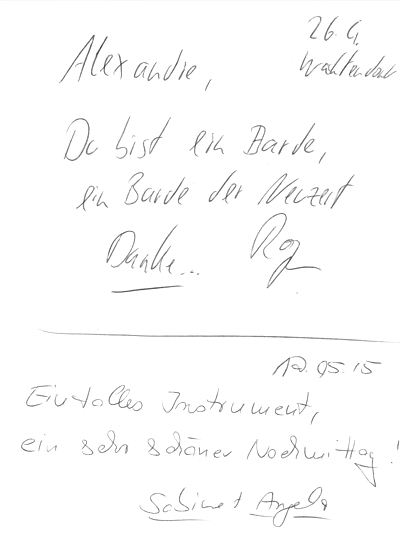 26.4.
Wachtendonk
Alexandre,
Du bist ein Barde,
ein Barde der Neuzeit
Danke...
12.05.15
Ein tolles Instrument,
ein sehr schöner Nachmittag!
Sabine + Angela